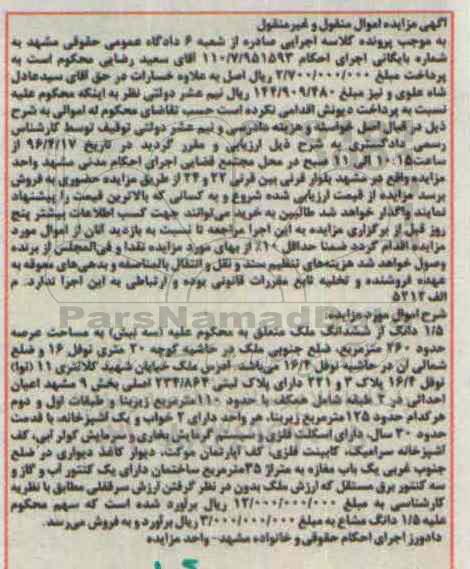 آگهی مزایده اموال منقول و غیرمنقول
به موجب پرونده کلاسه اجرایی صادره از شعبه ۶ دادگاه عمومی حقوقی مشهد به
شماره بایگانی اجرای احکام ۱۱۰/۷/۹۵۱۵۹۳ آقای سعید رضایی محکوم است به
پرداخت مبلغ ۲/۷۰۰/۰۰۰/۰۰۰ ریال اصل به علاوه خسارات در حق آقای سیدعادل
شاه علوی و نیز مبلغ ۱۴۴/۹۰۹/۴۸۰ ریال نیم عشر دولتی نظر به اینکه محکوم علیه
نسبت به پرداخت دیونش اقدامی نکرده است حسب تقاضای محکوم له اموالی به شرح
ذیل در قبال اصل خواسته و هزینه دادرسی و نیم عشر دولتی توقیف توسط کارشناس
رسمی دادگستری به شرح ذیل ارزیابی و مقرر گردید در تاریخ ۹۶/۴/۱۷ از
ساعت ۱۰:۱۵ الی ۱۱ صبح در محل مجتمع قضایی اجرای احکام مدنی مشهد واحد
مزایده واقع در مشهد بلوار قرنی بین قرنی ۲۲ و ۲۴ از طریق مزایده حضوری به فروش
برسد مزایده از قیمت ارزیابی شده شروع و به کسانی که بالاترین قیمت را پیشنهاد
نمایند واگذار خواهد شد طالبین به خرید می‌توانند جهت کسب اطلاعات بیشتر پنج
روز قبل از برگزاری مزایده به این اجرا مراجعه تا نسبت به بازدید آنان از اموال مورد
مزایده اقدام گردد ضمنا حداقل ۱۰٪ از بهای مورد مزایده نقدا و فی‌المجلس از برنده
وصول خواهد شد هزینه‌های تنظیم سند و نقل و انتقال بالمناصفه و بدهی‌های معوقه به
عهده فروشنده و تخلیه تابع مقررات قانونی بوده و ارتباطی به این اجرا ندارد. م
الف ۵۲۱۲
شرح اموال مورد مزایده:
۱/۵ دانگ از ششدانگ ملک متعلق به محکوم علیه (سه نبش) به مساحت عرصه
حدود ۲۶۰ مترمربع، ضلع جنوبی ملک در حاشیه کوچه ۲۰ متری نوفل ۱۶ و ضلع
شمالی آن در حاشیه نوفل ۱۶/۴ می‌باشد. آدرس ملک خیابان شهید کلانتری ۱۱ (نوا)
نوفل ۱۶/۴ پلاک ۳ و ۲۲۱ دارای پلاک ثبتی ۲۳۴/۸۶۴ اصلی بخش ۹ مشهد اعیان
احداثی در ۳ طبقه شامل همکف با حدود ۱۱۰ مترمربع زیربنا و طبقات اول و دوم
هرکدام حدود ۱۲۵ مترمربع زیربنا، هر واحد دارای ۲ خواب و یک آشپزخانه، با قدمت
حدود ۳۰ سال، دارای اسکلت فلزی و سیستم گرمایش بخاری و سرمایش کولر آبی، کف
آشپزخانه سرامیک، کابینت فلزی، کف آپارتمان موکت، دیوار کاغذ دیواری در ضلع
جنوب غربی یک باب مغازه به متراژ ۳۵ مترمربع ساختمان دارای یک کنتور آب و گاز و
سه کنتور برق مستقل که ارزش ملک بدون در نظر گرفتن ارزش سرقفلی مطابق با نظریه
کارشناسی به مبلغ ۱۲/۰۰۰/۰۰۰/۰۰۰ ریال برآورد شده است که سهم محکوم
علیه ۱/۵ دانگ مشاع به مبلغ ۳/۰۰۰/۰۰۰/۰۰۰ ریال برآورد و به فروش می‌رسد.
دادورز اجرای احکام حقوقی و خانواده مشهد - واحد مزایده
ParsNamadData